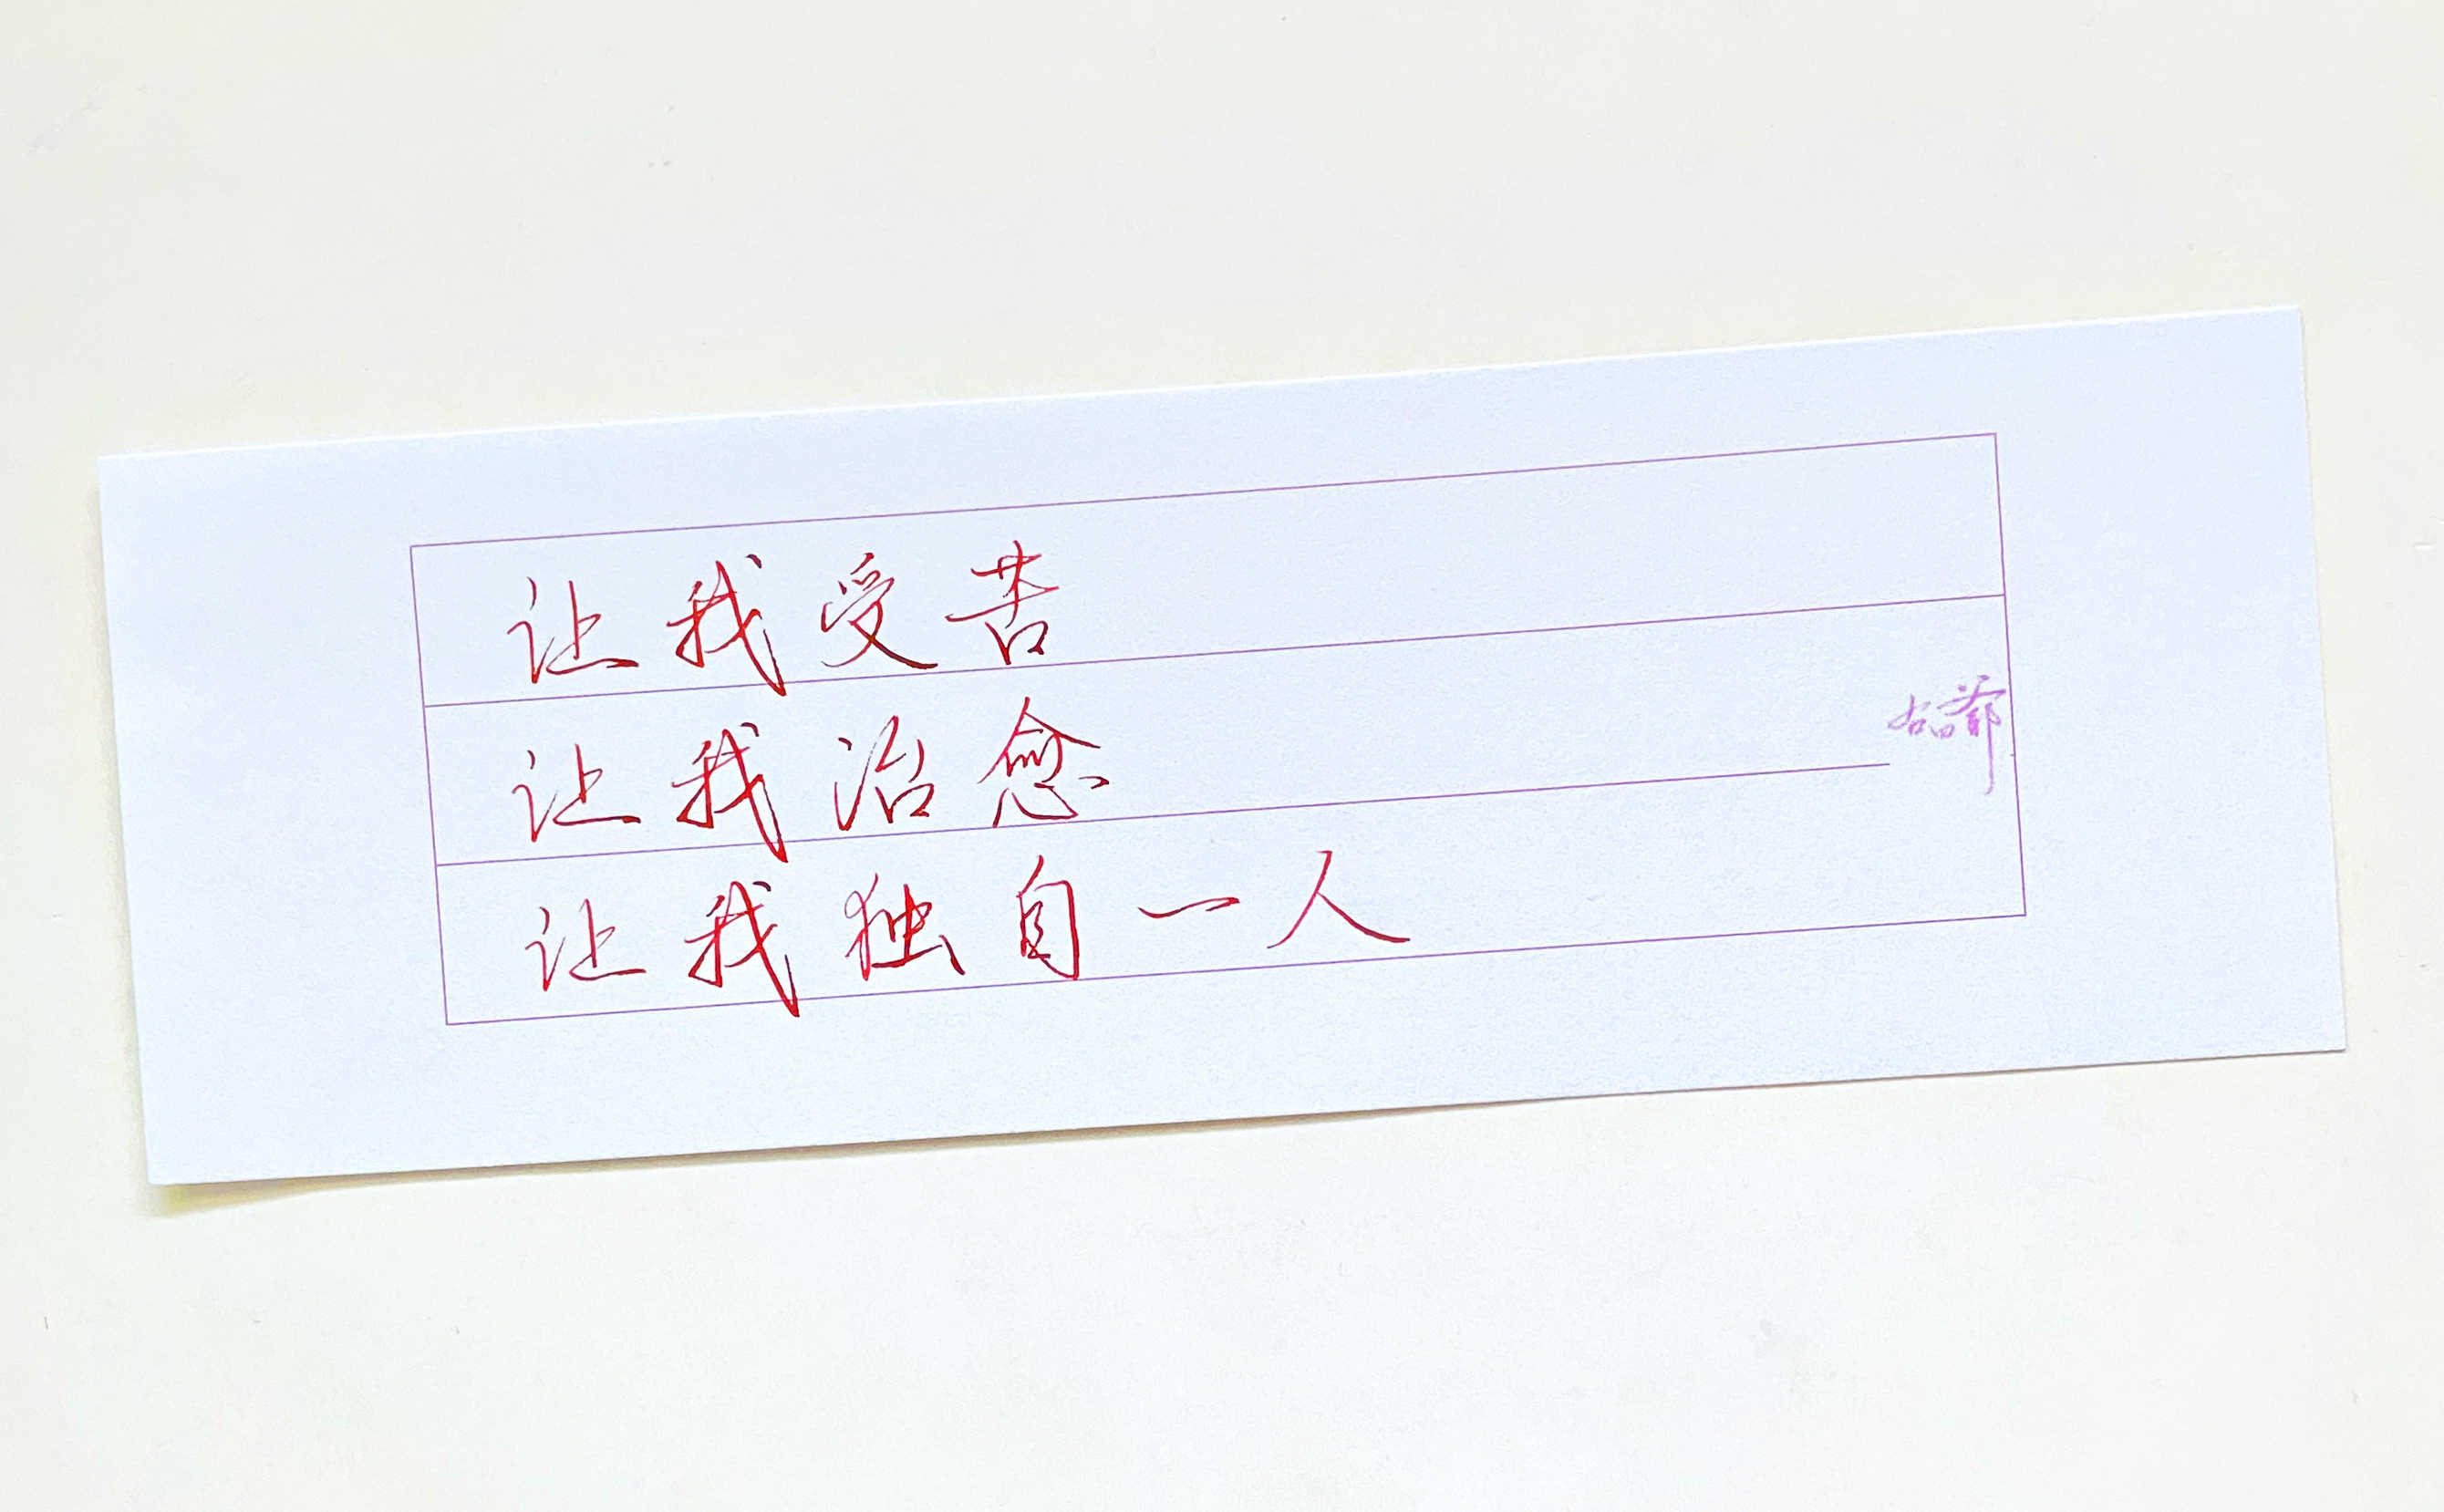 让我受苦
让我治愈
让我独自一人